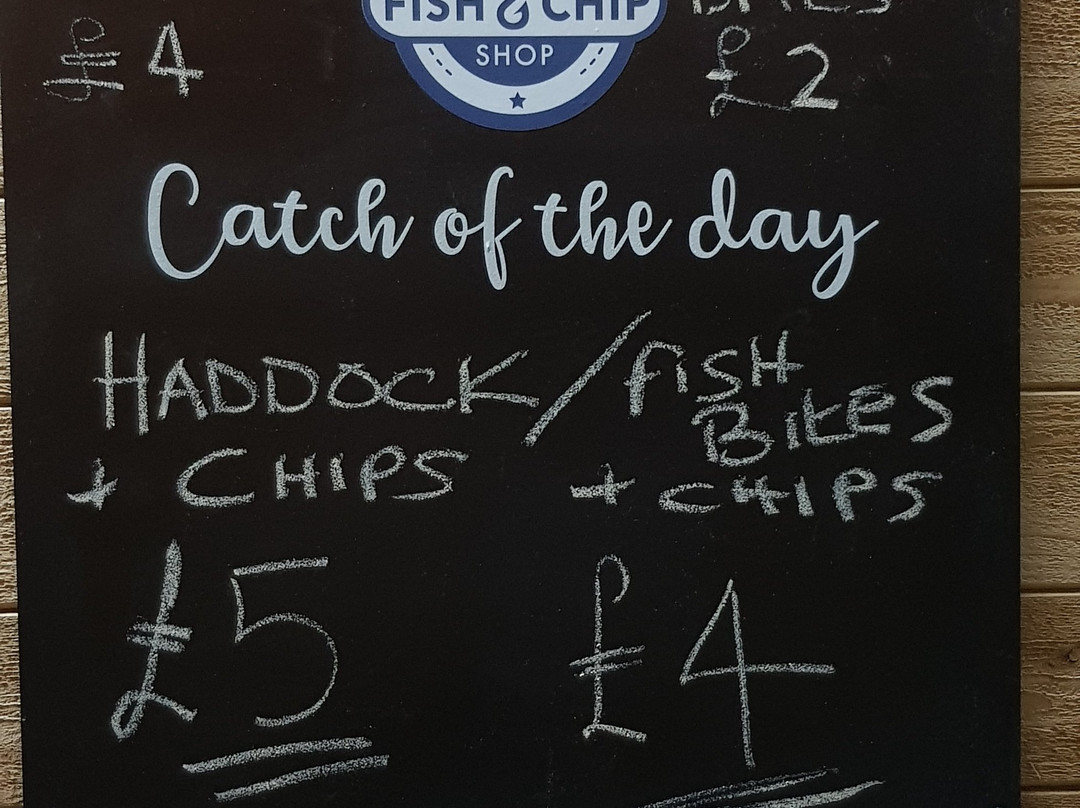 FISH & CHIP
SHOP
£4
£2
Catch of the day
HADDOCK / FISH
BITES
+ CHIPS + CHIPS
£5 £4